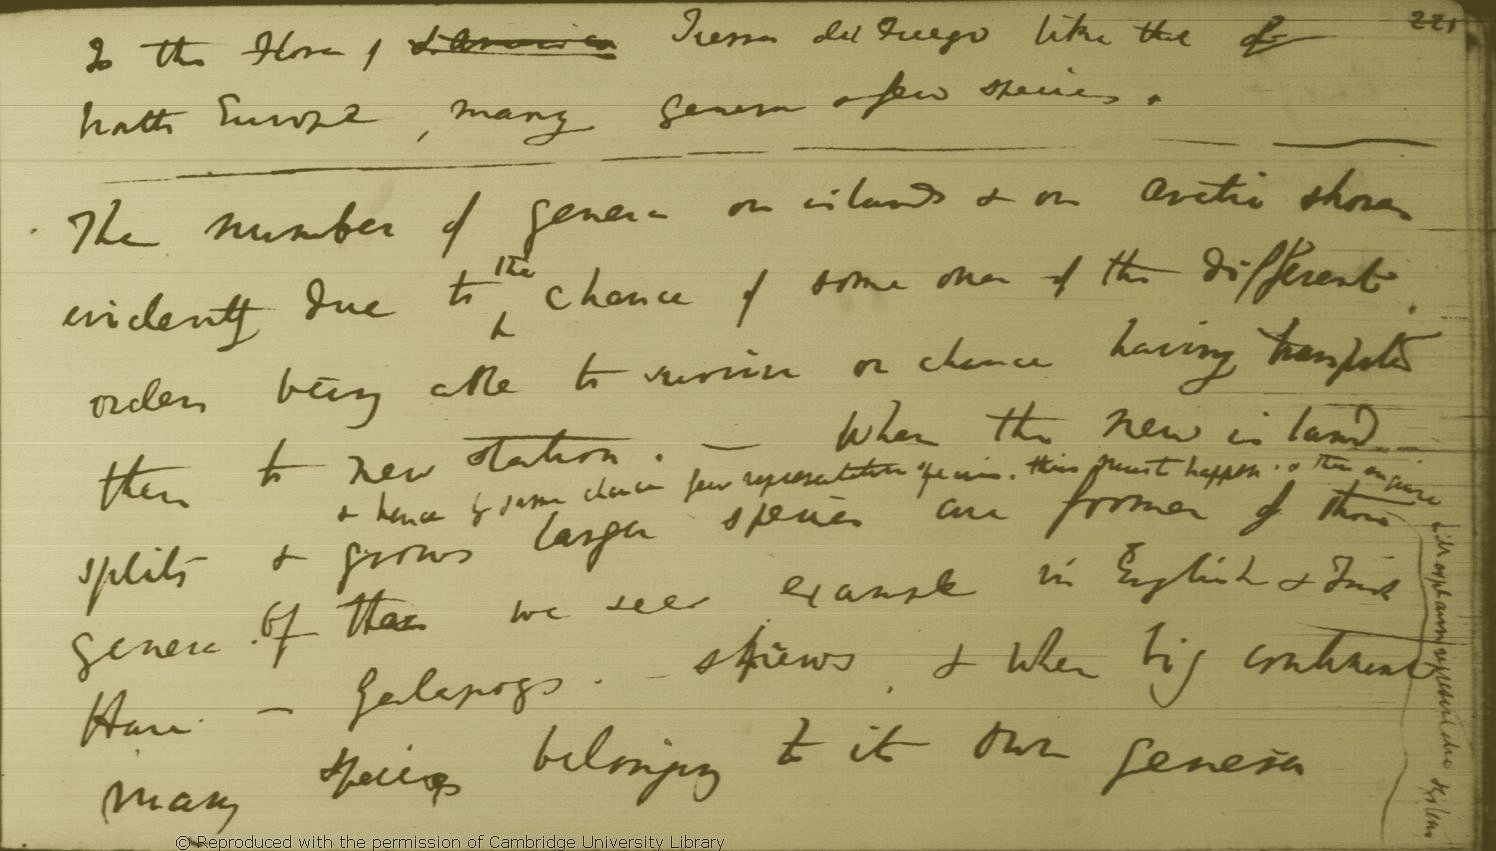 221
Is the Flora of S. America Tierra del Fuego like that of
North Europe, many genera & few species.
The number of genera on islands & on arctic shores
evidently due to the chance of some ones of the different
orders being able to survive or chance having transported
them to new station. — When the new island
& hence by same chance few representative species. this must happen. &
splits & grows larger species are formed of those
genera. Of this we see example in English & Irish
Hare — Galapagos. — shrews, & when big continent
many species belonging to its own genera
© Reproduced with the permission of Cambridge University Library